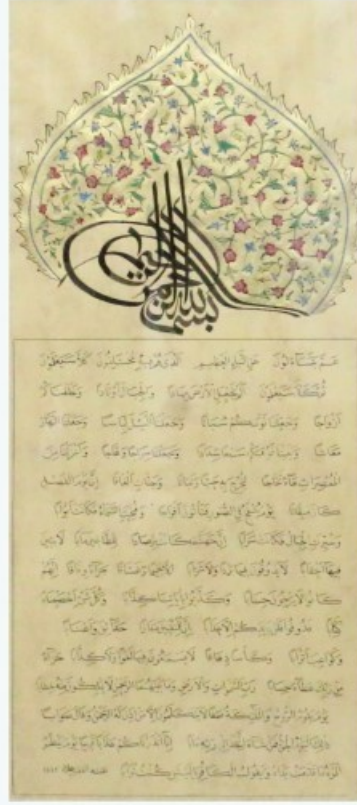 بسم الله الرحمن الرحيم
عم يتساءلون عن النبإ العظيم الذي هم فيه مختلفون كلا سيعلمون
ثم كلا سيعلمون ألم نجعل الأرض مهادا والجبال أوتادا وخلقناكم
أزواجا وجعلنا نومكم سباتا وجعلنا الليل لباسا وجعلنا النهار
معاشا وبنينا فوقكم سبعا شدادا وجعلنا سراجا وهاجا وأنزلنا من
المعصرات ماء ثجاجا لنخرج به حبا ونباتا وجنات ألفافا إن يوم الفصل
كان ميقاتا يوم ينفخ في الصور فتأتون أفواجا وفتحت السماء فكانت أبوابا
وسيرت الجبال فكانت سرابا إن جهنم كانت مرصادا للطاغين مآبا لابثين
فيها أحقابا لا يذوقون فيها بردا ولا شرابا إلا حميما وغساقا جزاء وفاقا إنهم
كانوا لا يرجون حسابا وكذبوا بآياتنا كذابا وكل شيء أحصيناه
كتابا فذوقوا فلن نزيدكم إلا عذابا إن للمتقين مفازا حدائق وأعنابا
وكواعب أترابا وكأسا دهاقا لا يسمعون فيها لغوا ولا كذابا جزاء
من ربك عطاء حسابا رب السماوات والأرض وما بينهما الرحمن لا يملكون منه خطابا
يوم يقوم الروح والملائكة صفا لا يتكلمون إلا من أذن له الرحمن وقال صوابا
ذلك اليوم الحق فمن شاء اتخذ إلى ربه مآبا إنا أنذرناكم عذابا قريبا يوم ينظر
المرء ما قدمت يداه ويقول الكافر يا ليتني كنت ترابا